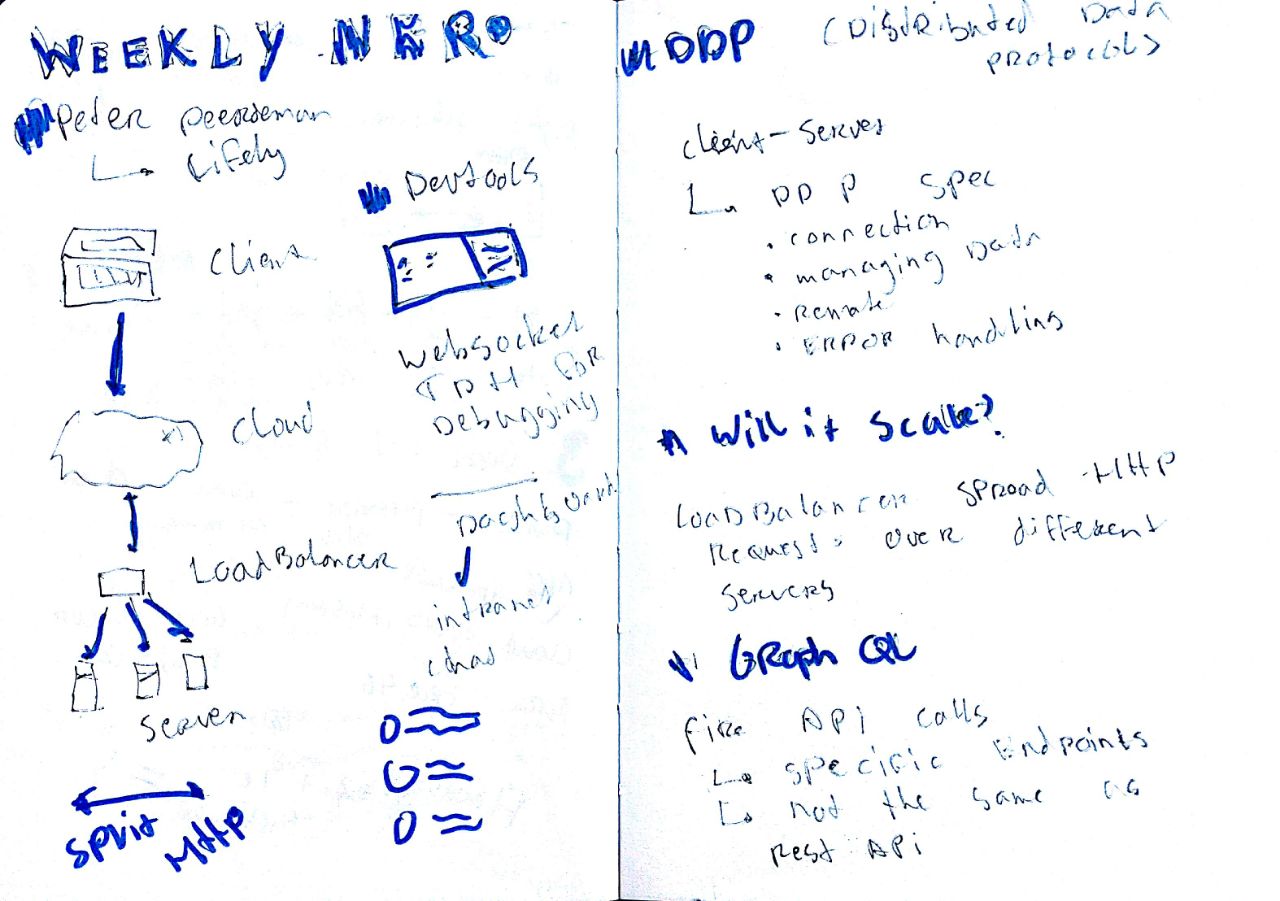 WEEKLY NERD
Peter Peerdeman
Lifely
Client
Cloud
LoadBalancer
Server
Split
HTTP
Devtools
Websocket
FOR
Debugging
Dashboard
intranet
chat
DDP (Distributed Data
Protocols)
Client-Server
DDP Spec
connection
managing Data
Remote
ERROR handling
Will it Scale?
LoadBalancer spread HTTP
Requests over different
Servers
GRaph QL
fire API calls
specific Endpoints
not the same as
Rest APi